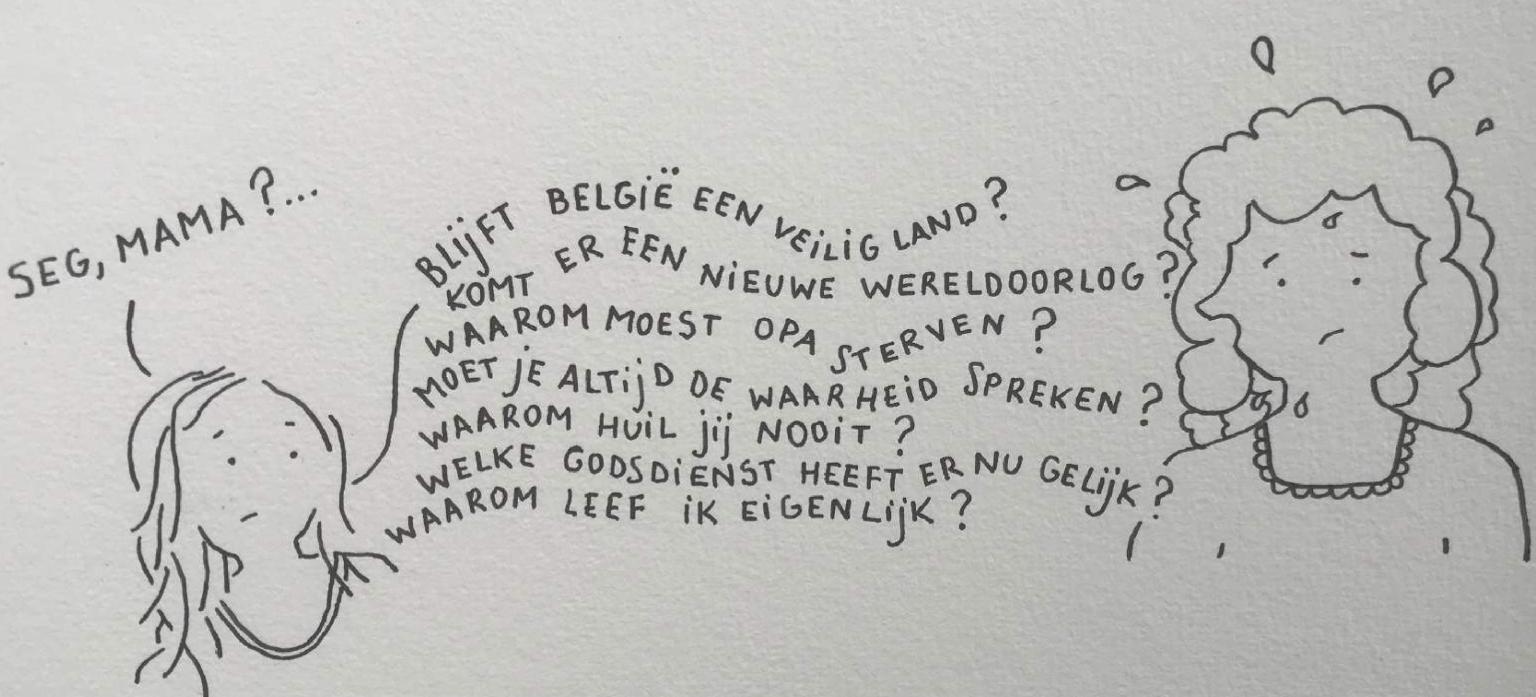 SEG, MAMA?...
BLIJFT BELGIË EEN VEILIG LAND?
KOMT ER EEN NIEUWE WERELDOORLOG?
WAAROM MOEST OPA STERVEN?
MOET JE ALTIJD DE WAARHEID SPREKEN?
WAAROM HUIL JIJ NOOIT?
WELKE GODSDIENST HEEFT ER NU GELIJK?
WAAROM LEEF IK EIGENLIJK?